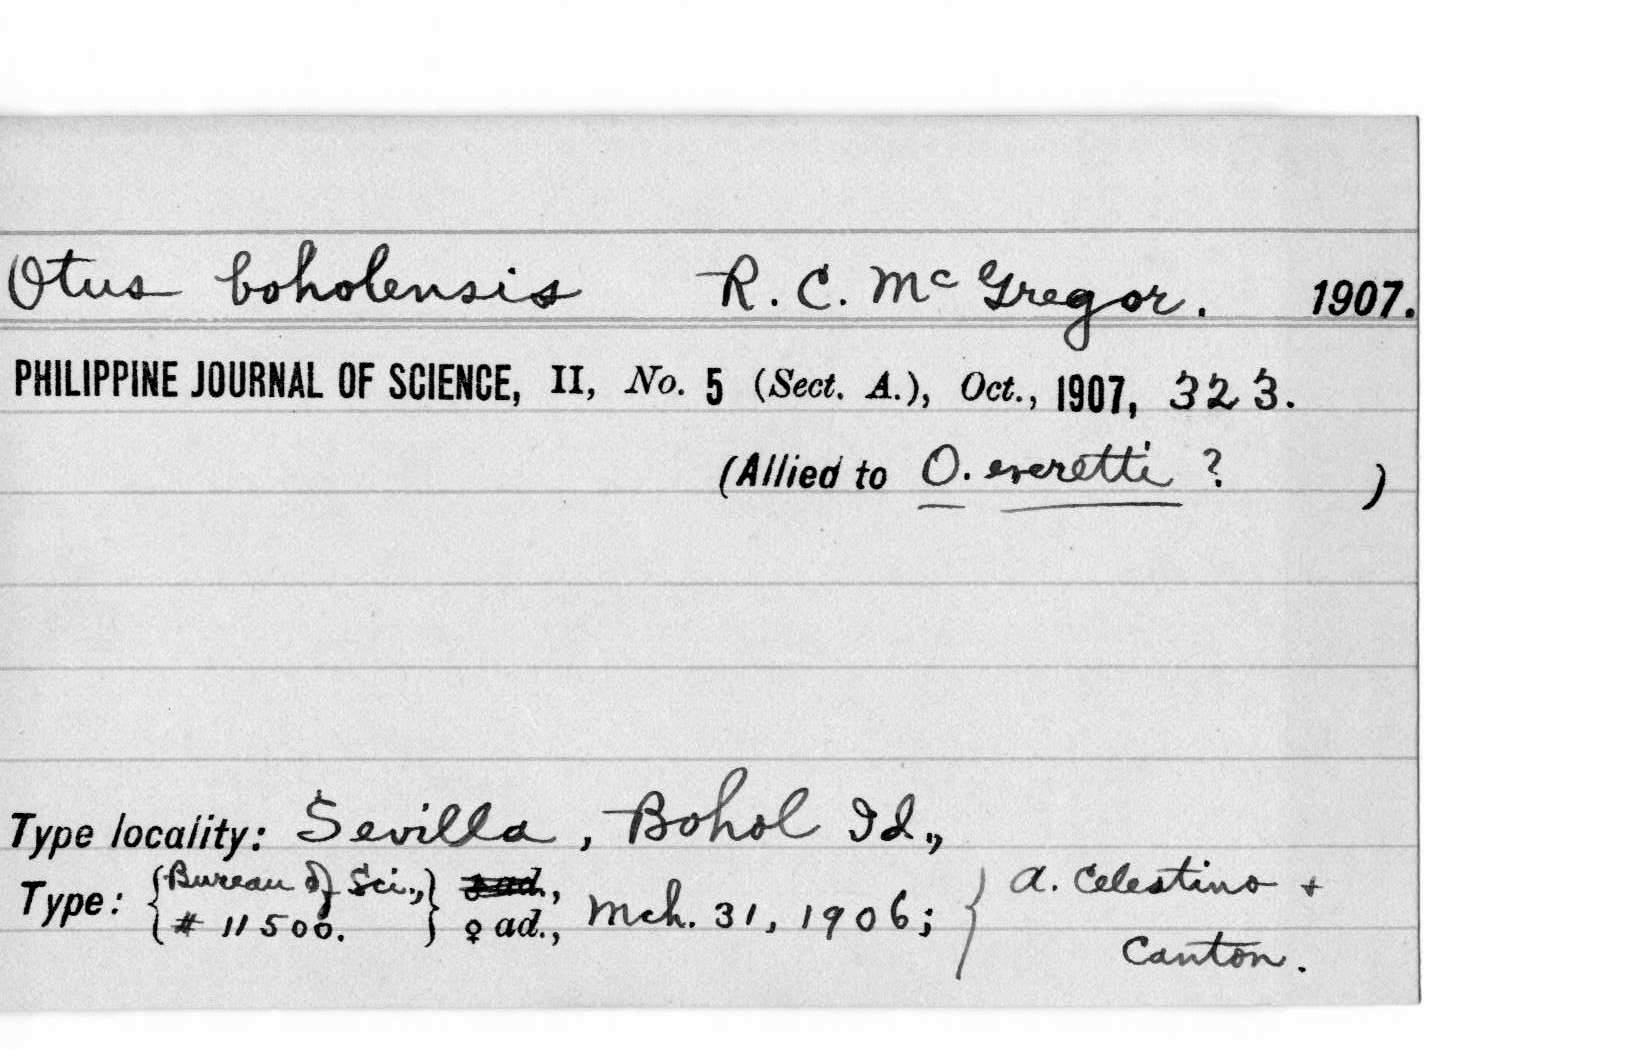 Otus boholensis R. C. McGregor. 1907.
PHILIPPINE JOURNAL OF SCIENCE, II, No. 5 (Sect. A.), Oct., 1907, 323.
(Allied to O. everetti ? )
Type locality: Sevilla, Bohol Id.,
Type: {Bureau of Sci., # 11500.} ♂ ad., ♀ ad., Mch. 31, 1906; { A. Celestino + Canton.